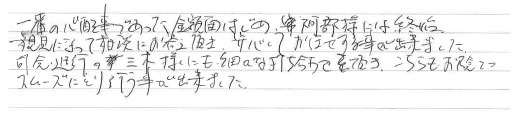 一番の心配事であった金額面はじめ、阿部様には終始
親身になって相談にお答え頂き、サバサバ　がはせする事が出来ました。
司会進行の三木様にも細かな打ち合わせを頂き、こちらもお陰で
スムーズにとり行う事が出来ました。